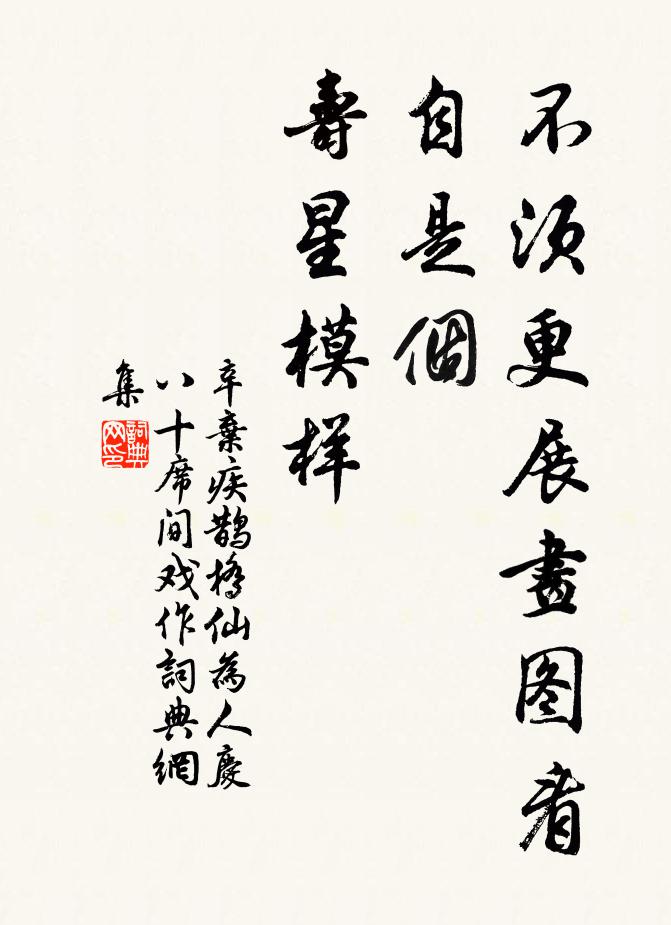 不须更展畫图看
自是個
壽星模样
辛棄疾鹊橋仙為人慶
八十席间戏作詞典網
集
詞典网印